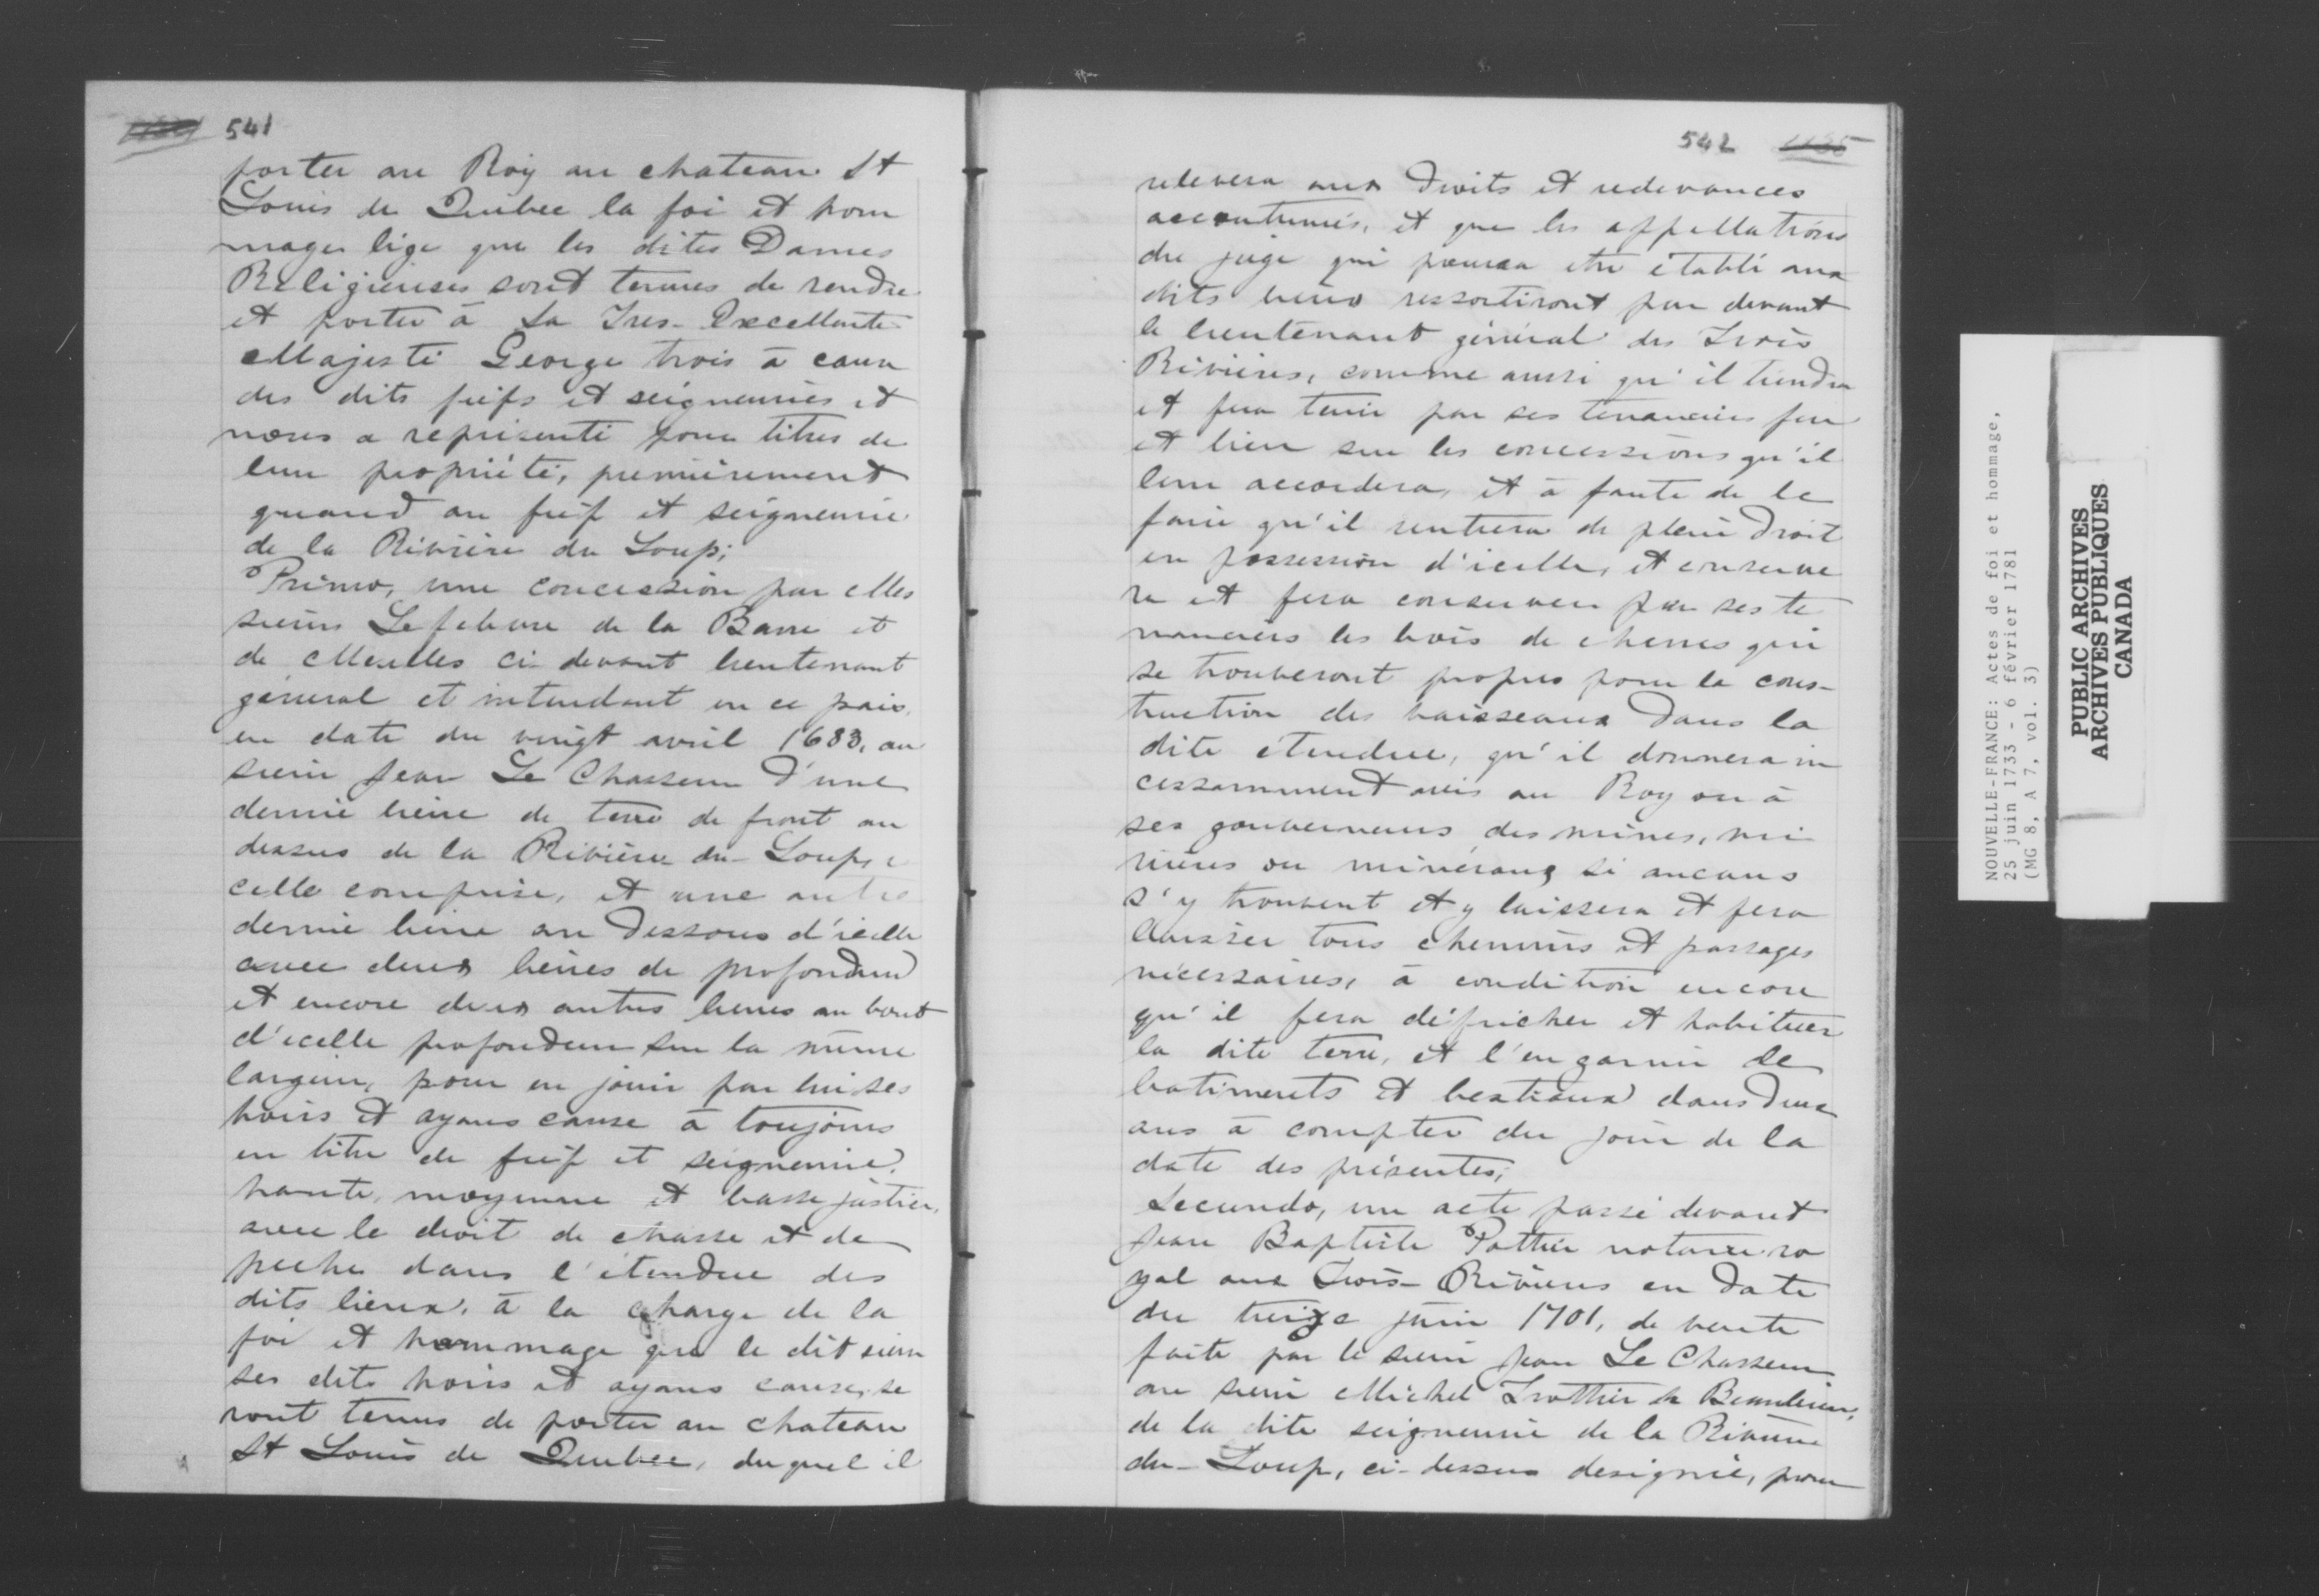 541
porter au Roy au chateau St
Louis de Quebec la foi et hom
mage lige que les dites Dames
Religieuses sont tenues de rendre
et porter à Sa Tres-Excellente
Majesté George trois à cause
des dits fiefs et seigneuries et
nous a representé pour titres de
leur propriété, premièrement
quand au fief et seigneurie
de la Rivière du Loup;
Primo, une concession par elles
sieurs Lefebvre de la Barre et
de Meulles ci-devant lieutenant
général et intendant en ce pais
en date du vingt avril 1683, au
sieur Jean Le Chasseur d'une
demie lieue de terre de front au
dessus de la Rivière du-Loup, i
celle comprise, et une autre
demie lieue au dessous d'icelle
avec deux lieues de profondeur
et encore deux autres lieues au bout
d'icelle profondeur sur la même
largeur, pour en jouir par lui ses
hoirs et ayans cause à toujours
en titre de fief et seigneurie,
haute, moyenne et basse justice,
avec le droit de chasse et de
peche dans l'étendue des
dits lieux, à la charge de la
foi et hommage que le dit sieur
ses dits hoirs et ayans cause, se
ront tenus de porter au chateau
St Louis de Quebec, duquel il
542
relevera aux droits et redevances
accoutumés, et que les appellations
du juge qui pourra etre établi aux
dits lieux ressortiront par devant
le lieutenant général des Trois
Rivières, comme aussi qu'il tiendra
et fera tenir par ses tenanciers feu
et lieu sur les concessions qu'il
leur accordera, et à faute de le
faire qu'il rentrera de plein droit
en possession d'icelle, et conserve
ra et fera conserver par ses te
nanciers les bois de chenes qui
se trouveront propres pour la cons-
truction des vaisseaux dans la
dite étendue, qu'il donnera in
cessamment avis au Roy ou à
ses gouverneurs des mines, mi
nières ou minéraux si aucuns
s'y trouvent et y laissera et fera
laisser tous chemins et passages
nécessaires, à condition encore
qu'il fera défricher et habituer
la dite terre, et l'en garnir de
batiments et bestiaux dans deux
ans à compter du jour de la
date des présentes;
Secundo, un acte passé devant
Jean Baptiste Pottier notaire ro
yal aux Trois-Rivières en date
du treize juin 1701, de vente
faite par le sieur Jean Le Chasseur
au sieur Michel Trottier de Beaulieu,
de la dite seigneurie de la Rivière
du-Loup, ci-dessus designée, pour
NOUVELLE-FRANCE: Actes de foi et hommage,
25 juin 1733 - 6 février 1781
(MG 8, A 7, vol. 3)
PUBLIC ARCHIVES
ARCHIVES PUBLIQUES
CANADA